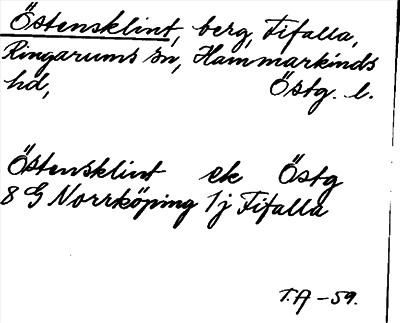 Östensklint, berg, Fifalla,
Ringarums sn, Hammarkinds
hd, Östg. l.
Östensklint ek Östg
8 G Norrköping 1j Fifalla
T.A -59.